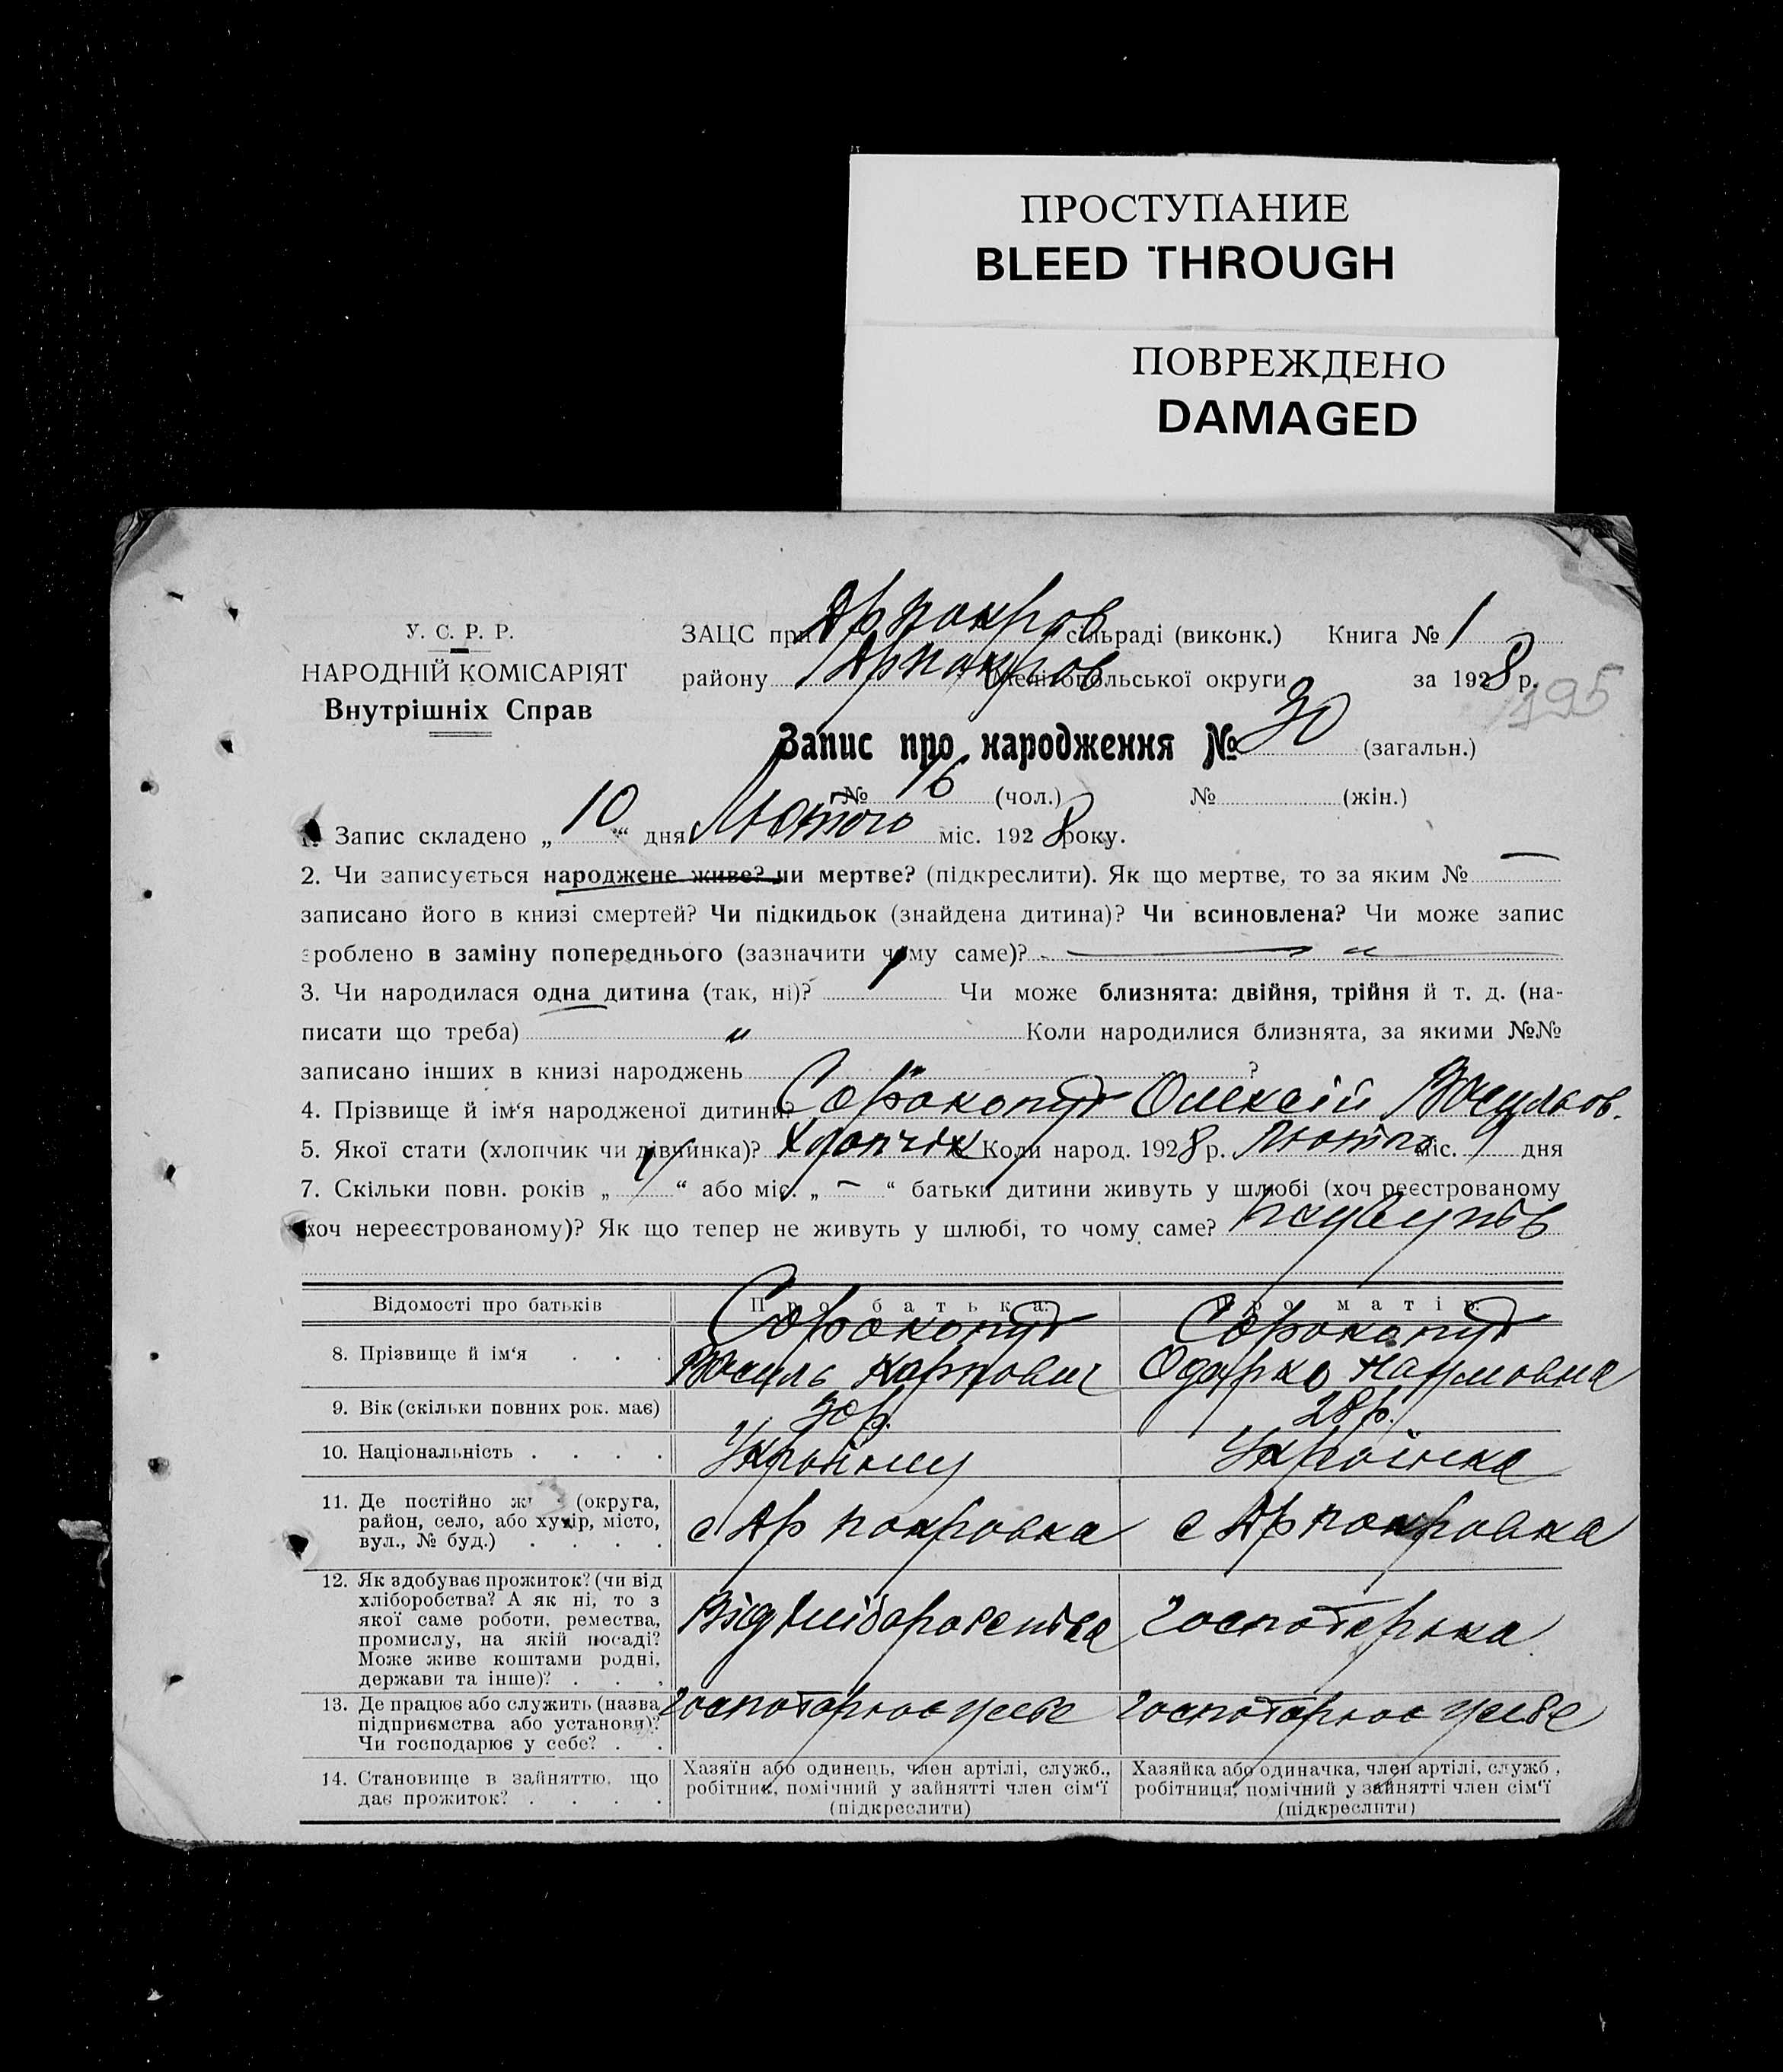 ПРОСТУПАНИЕ
BLEED THROUGH
ПОВРЕЖДЕНО
DAMAGED
У. С. Р. Р.
НАРОДНІЙ КОМІСАРІЯТ
Внутрішніх Справ
ЗАЦС при Др Покров сільраді (виконк.) Книга № 1
району Др Покров Мелітопольської округи за 1928 р.
195
Запис про народження № 30 (загальн.)
№ 16 (чол.) № (жін.)
1. Запис складено „ 10 “ дня Лютого міс. 1928 року.
2. Чи записується народжене живе? чи мертве? (підкреслити). Як що мертве, то за яким № —
записано його в книзі смертей? Чи підкидьок (знайдена дитина)? Чи всиновлена? Чи може запис
зроблено в заміну попереднього (зазначити чому саме)? — „ —
3. Чи народилася одна дитина (так, ні)? Чи може близнята: двійня, трійня й т. д. (на-
писати що треба) „ Коли народилися близнята, за якими №№
записано інших в книзі народжень „ ?
4. Прізвище й ім‘я народженої дитини? Сорокопуд Олексій Васильов.
5. Якої стати (хлопчик чи дівчинка)? Хлопчік Коли народ. 1928 р. Лютого міс. 9 дня
7. Скільки повн. років „ “ або міс. „ — “ батьки дитини живуть у шлюбі (хоч реєстрованому
хоч нереєстрованому)? Як що тепер не живуть у шлюбі, то чому саме?
Відомості про батьків Про батька: Про матір:
8. Прізвище й ім‘я . . . Сорокопуд Сорокопуд
Василь Карпович Одарка Наумовна
9. Вік (скільки повних рок. має) 30 р. 28 р.
10. Національність . . . . Українец Українка
11. Де постійно (округа,
район, село, або хутір, місто,
вул., № буд.) . . . .
с Др Покровка с Др Покровка
12. Як здобуває прожиток? (чи від
хліборобства? А як ні, то з
якої саме роботи, ремества,
промислу, на якій посаді?
Може живе коштами родні,
держави та інше)? . . .
Від хліборобства Господарька
13. Де працює або служить (назва
підприємства або установи)?
Чи господарює у себе? . .
господарює усебе господарює усебе
14. Становище в зайняттю, що
дає прожиток? . . . .
Хазяїн або одинець, член артілі, служб.,
робітник, помічний у зайнятті член сім‘ї
(підкреслити)
Хазяйка або одиначка, член артілі, служб.,
робітниця, помічний у зайнятті член сім‘ї
(підкреслити)